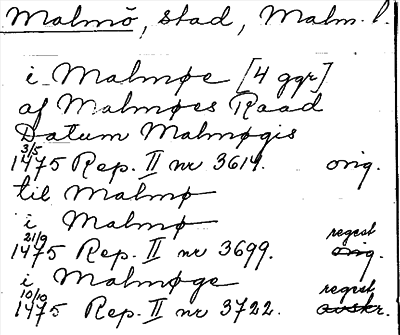 Malmö, stad, Malm. l.
i Malmøe [4 ggr]
af Malmøes Raad
Datum Malmøgis
3/5
1475 Rep. II nr 3614. orig.
til Malmø
i Malmø
21/9 regest
1475 Rep. II nr 3699. orig.
i Malmøge
10/10 regest
1475 Rep. II nr 3722. avskr.